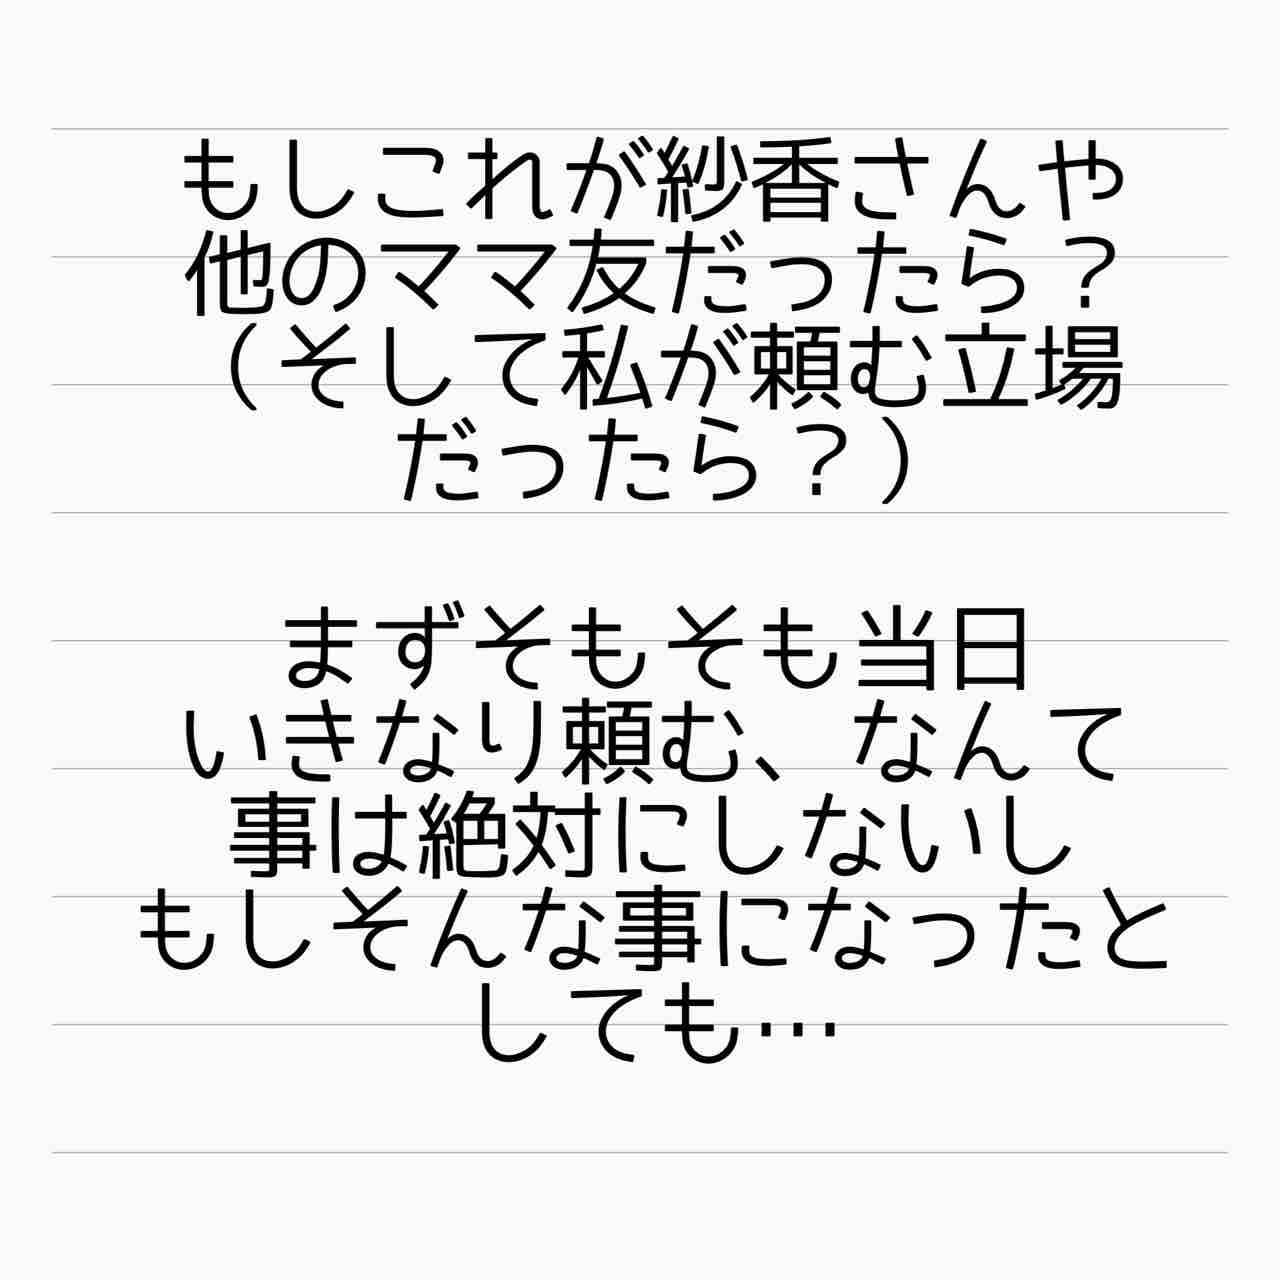 もしこれが紗香さんや
他のママ友だったら？
（そして私が頼む立場
だったら？）
まずそもそも当日
いきなり頼む、なんて
事は絶対にしないし
もしそんな事になったと
しても…